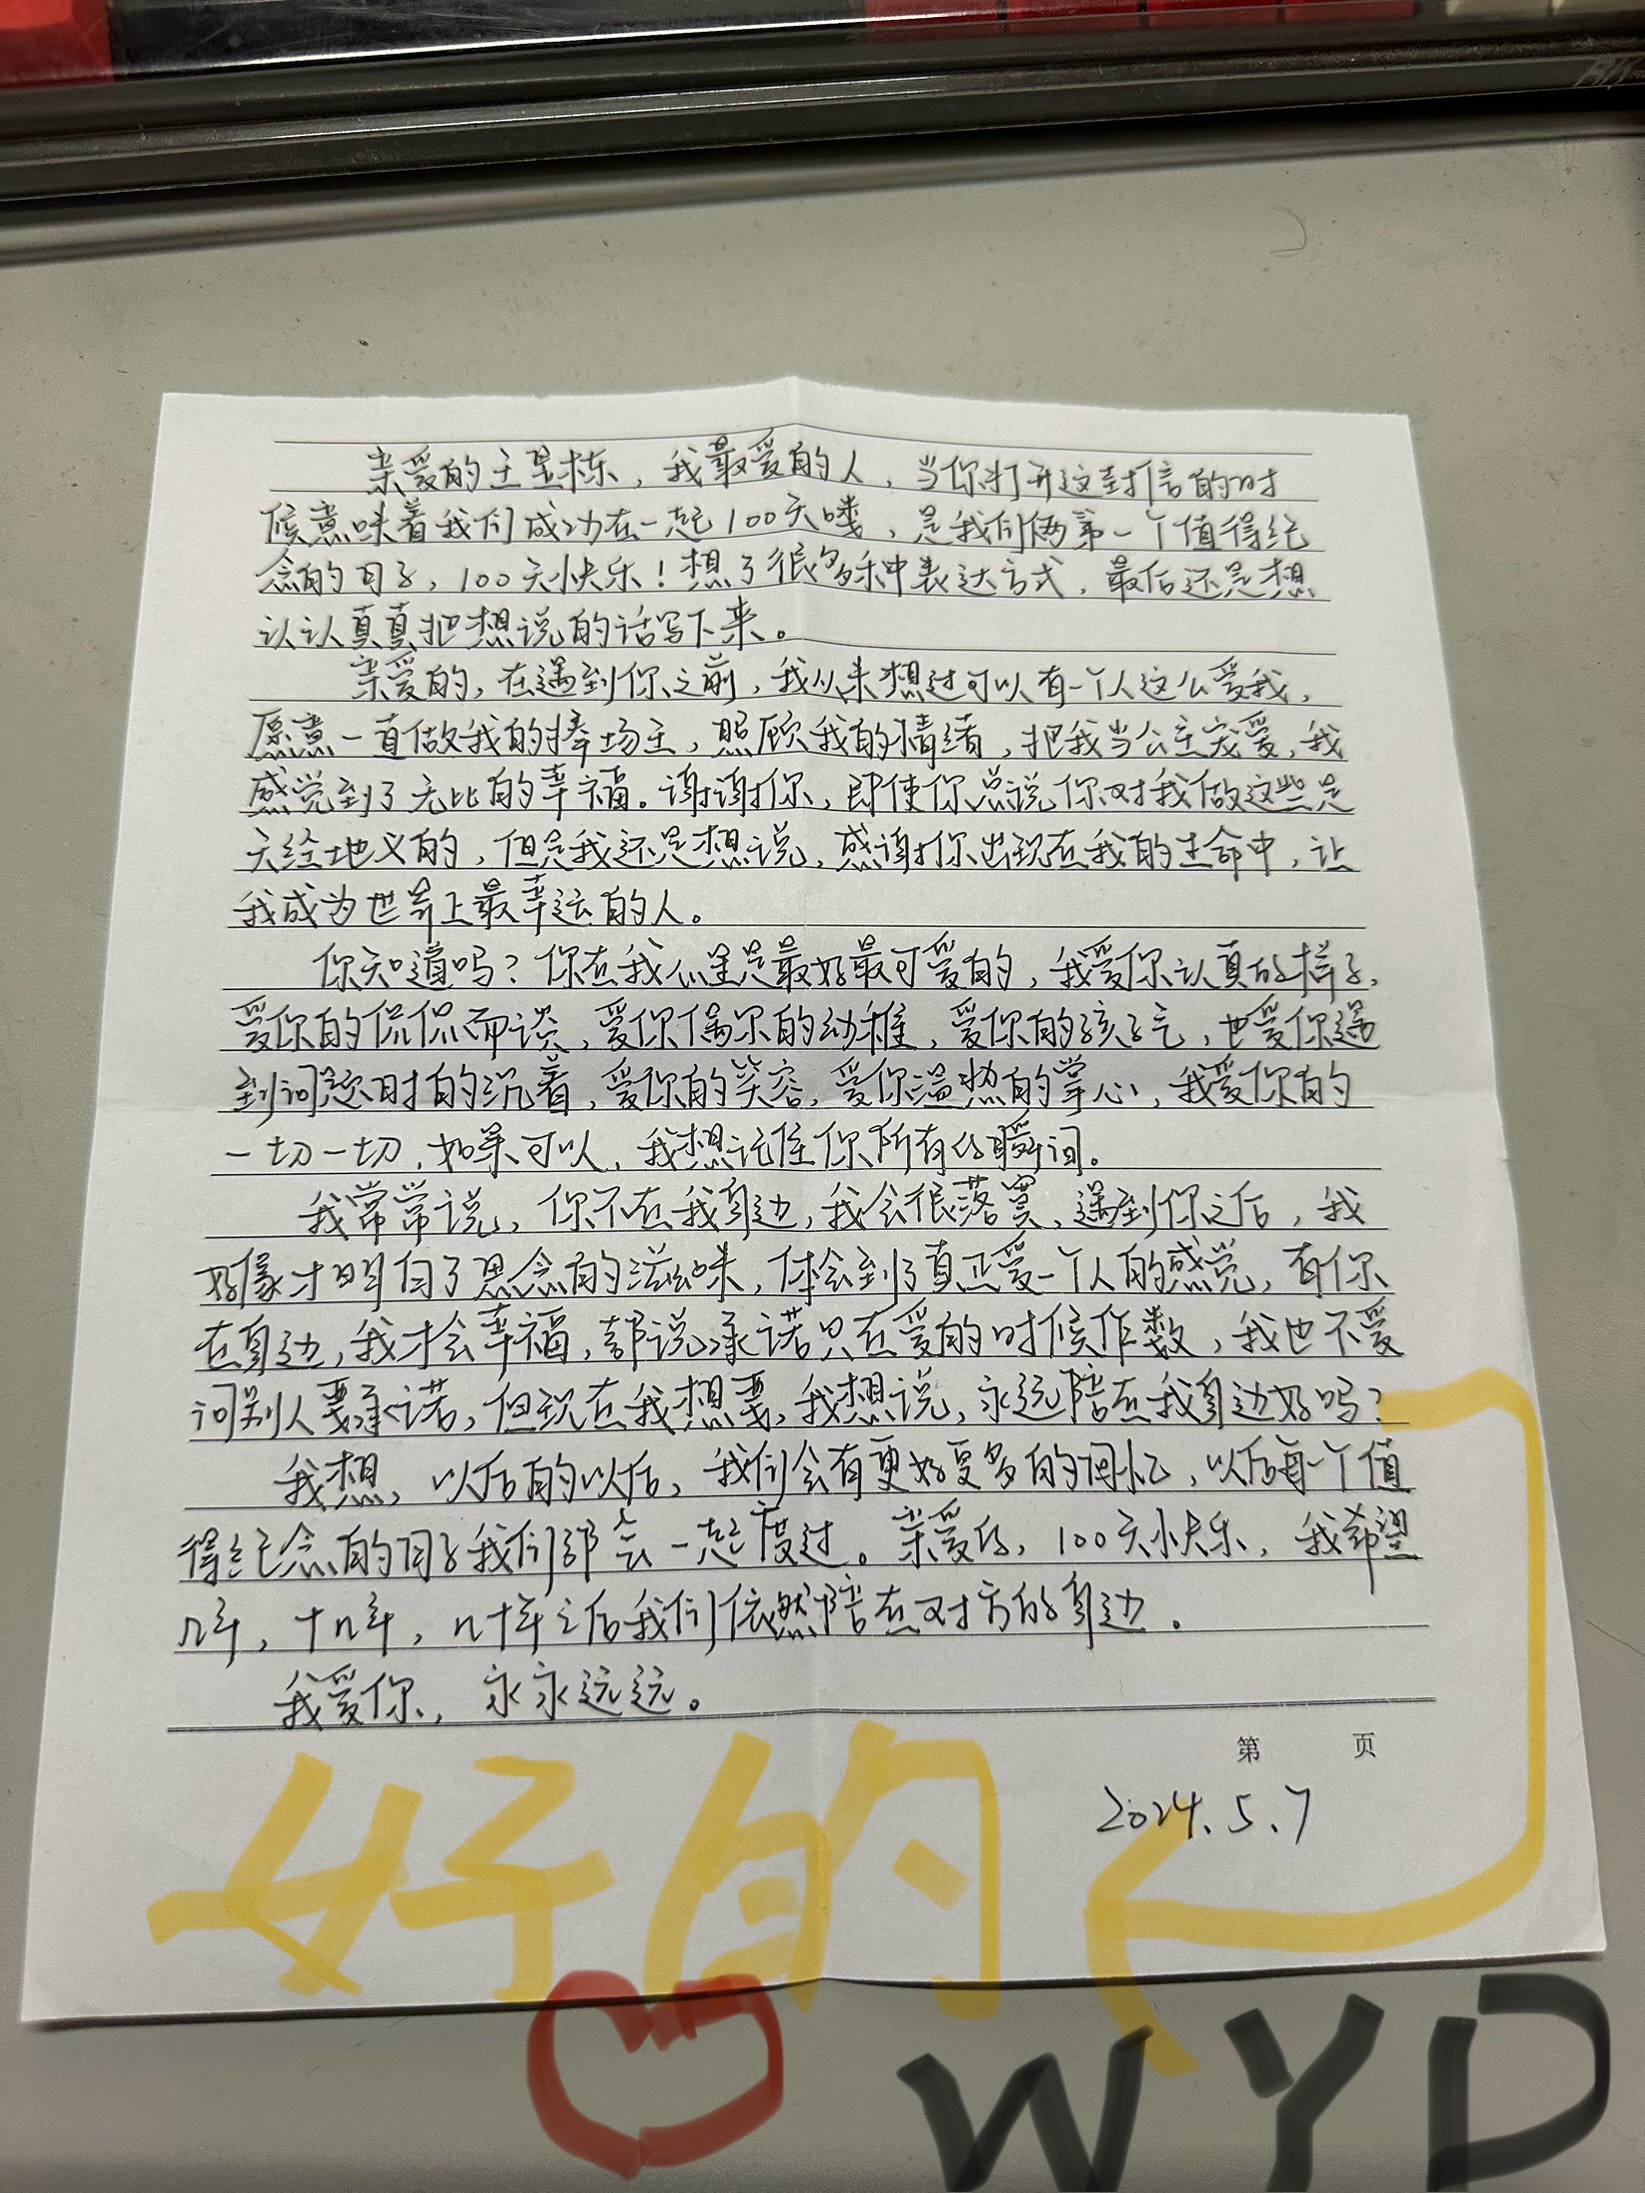 亲爱的王昱栋，我最爱的人，当你打开这封信的时
候意味着我们成功在一起100天喽，是我们俩第一个值得纪
念的日子，100天快乐！想了很多种表达方式，最后还是想
认认真真把想说的话写下来。
亲爱的，在遇到你之前，我从来想过可以有一个人这么爱我，
愿意一直做我的捧场王，照顾我的情绪，把我当公主宠爱，我
感觉到了无比的幸福。谢谢你，即使你总说你对我做这些是
天经地义的，但是我还是想说，感谢你出现在我的生命中，让
我成为世界上最幸运的人。
你知道吗？你在我心里是最好最可爱的，我爱你认真的样子，
爱你的侃侃而谈，爱你偶尔的幼稚，爱你的孩子气，也爱你遇
到问题时的沉着，爱你的笑容，爱你温热的掌心，我爱你的
一切一切，如果可以，我想记住你所有的瞬间。
我常常说，你不在我身边，我会很落寞，遇到你之后，我
好像才明白了思念的滋味，体会到了真正爱一个人的感觉，有你
在身边，我才会幸福，都说承诺只在爱的时候作数，我也不爱
问别人要承诺，但现在我想要，我想说，永远陪在我身边好吗？
我想，以后的以后，我们会有更好更多的回忆，以后每一个值
得纪念的日子我们都会一起度过。亲爱的，100天快乐，我希望
几年，十几年，几十年之后我们依然陪在对方的身边。
我爱你，永永远远。
第 页
2024.5.7
好的
WYD